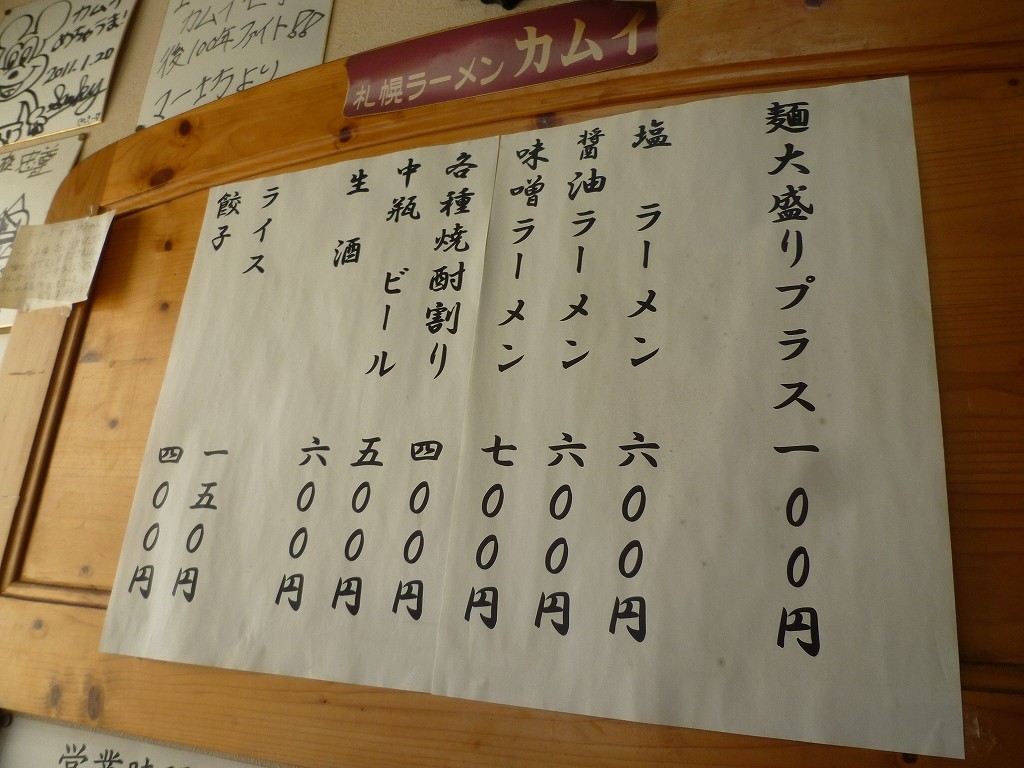 カムイ
めちゃうま!
2011.1.20
カムイ
後100年ファイト!!
より
札幌ラーメン カムイ
麺大盛りプラス 一００円
塩 ラーメン 六００円
醤油ラーメン 六００円
味噌ラーメン 七００円
各種焼酎割り 四００円
中瓶 ビール 五００円
生 酒 六００円
ライス 一五０円
餃子 四００円
営業時